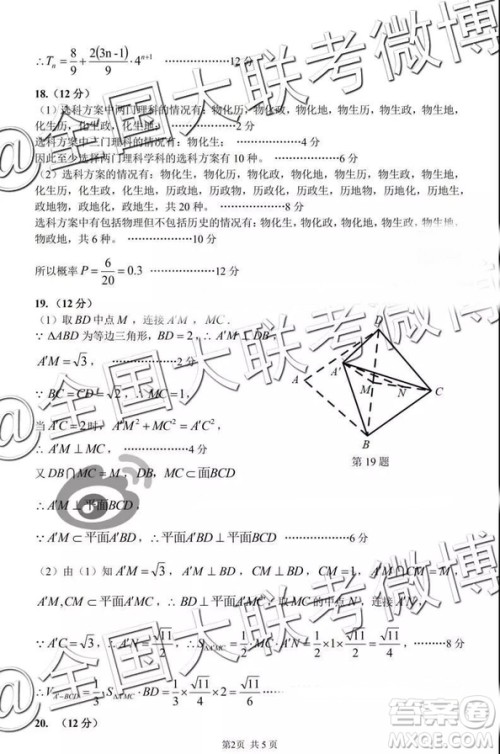 ∴T_n = 8/9 + 2(3n-1)/9 · 4^{n+1} ………………12 分
18.（12 分）
（1）选科方案中两门理科的情况有：物化历，物化政，物化地，物生历，物生政，物生地，
化生历，化生政，化生地， ………………2 分
选科方案中三门理科的情况有：物化生； ………………4 分
因此至少选择两门理科学科的选科方案有 10 种。 ………………6 分
（2）选科方案的情况有：物化生，物化历，物化政，物化地，物生历，物生政，物生地，
化生历，化生政，化生地，
政地物，政地化，政地生，共 20 种。 ………………8 分
选科方案中有包括物理但不包括历史的情况有：物化生，物化政，物化地，物生政，物生地，
物政地，共 6 种。 ………………10 分
所以概率 P = 6/20 = 0.3 ………………12 分
19.（12 分）
（1）取 BD 中点 M，连接 A′M，MC.
∵ △ABD 为等边三角形，BD = 2，∴ A′M ⊥ BD.
A′M = √3， ………………2 分
∵ BC = CD = √2，∴ MC = 1，
当 A′C = 2 时，A′M² + MC² = A′C²
∴ A′M ⊥ MC， ………………4 分
又 DB∩MC = M，DB，MC ⊂ 面BCD
∴ A′M ⊥ 平面BCD
∵ A′M ⊂ 平面A′BD，∴ 平面A′BD ⊥ 平面BCD ………………6 分
D
A′
A
M
N
C
B
第 19 题
（2）由（1）知 A′M = √3，A′M ⊥ BD，CM ⊥ BD，CM = 1，
A′M，CM ⊂ 平面A′MC，∴ BD ⊥ 平面A′MC 的中点 N，连接 A′N，
∵ A′C = √3，∴ A′N = √11/2，∴ S_{△A′MC} = 1/2 × 1 × √11/2 = √11/4， ………8 分
∴ V_{A′-BCD} = 1/3 S_{△A′MC} · BD = 1/3 × √11/4 × 2 = √11/6 ………
20.（12 分）
第2页 共 5 页
@全国大联考微博
@全国大联考微博
@全国大联考微博
答案圈